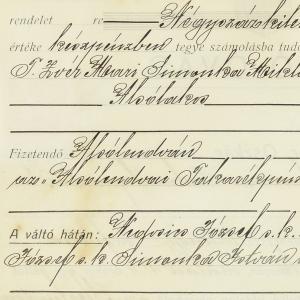 rendelet re Négyszázkilen
értéke készpénzben tegye számolásba tud
T. Zvér Mari Simonka Mikl
Alsólakos
Fizetendő Alsólendván
az Alsólendvai Takarékpén
A váltó hátán: József s. k.
József s. k. Simonka István